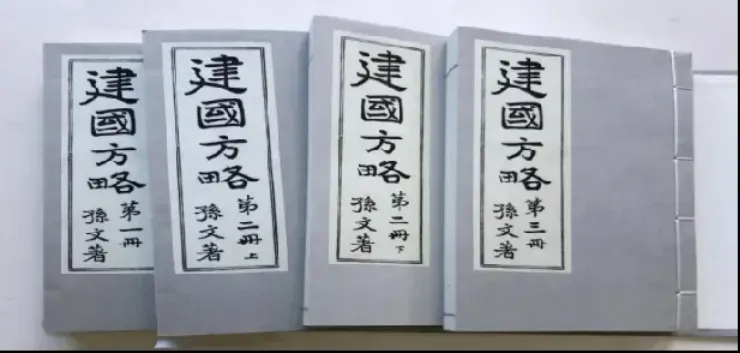 建國方略
第一冊
孫文著
建國方略
第二冊上
孫文著
建國方略
第二冊下
孫文著
建國方略
第三冊
孫文著